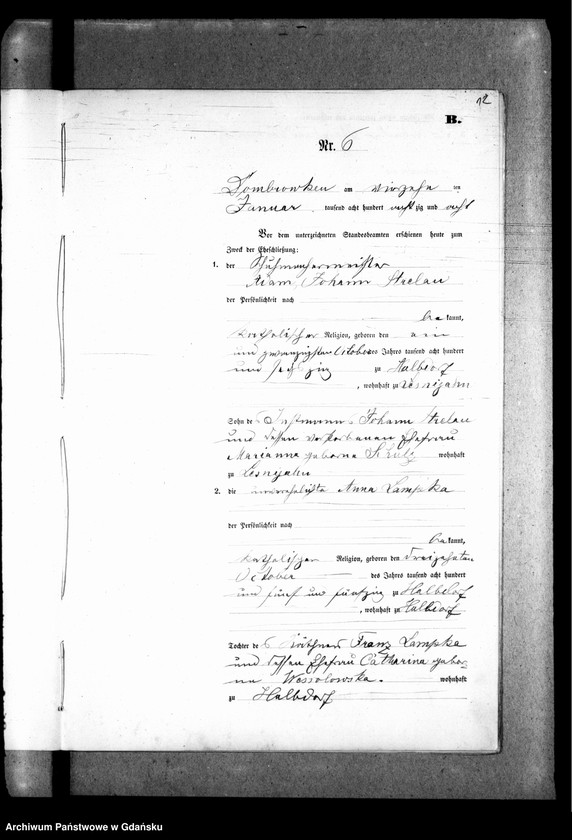 12
B.
Nr. 6
Dombrowken am vierzehn ten
Januar tausend acht hundert achtzig und acht
Vor dem unterzeichneten Standesbeamten erschienen heute zum
Zweck der Eheschließung:
1. der Schuhmachermeister
Adam, Johann Strelau
der Persönlichkeit nach
be kannt,
katholischer Religion, geboren den ein
und zwanzigsten October des Jahres tausend acht hundert
und sechszig zu Halbdorf
, wohnhaft zu Lesnijahn
Sohn des Johann Strelau
und dessen verstorbenen Ehefrau
Marianna geborne Schulz wohnhaft
zu Lesnijahn
2. die unverehelichte Anna Lampka
der Persönlichkeit nach
be kannt,
katholischer Religion, geboren den dreizehnten
October des Jahres tausend acht hundert
und fünf und fünfzig zu Halbdorf
, wohnhaft zu Halbdorf
Tochter des Käthners Franz Lampka
und dessen Ehefrau Catharina gebor
ne Wessolowska. wohnhaft
zu Halbdorf
Archiwum Państwowe w Gdańsku